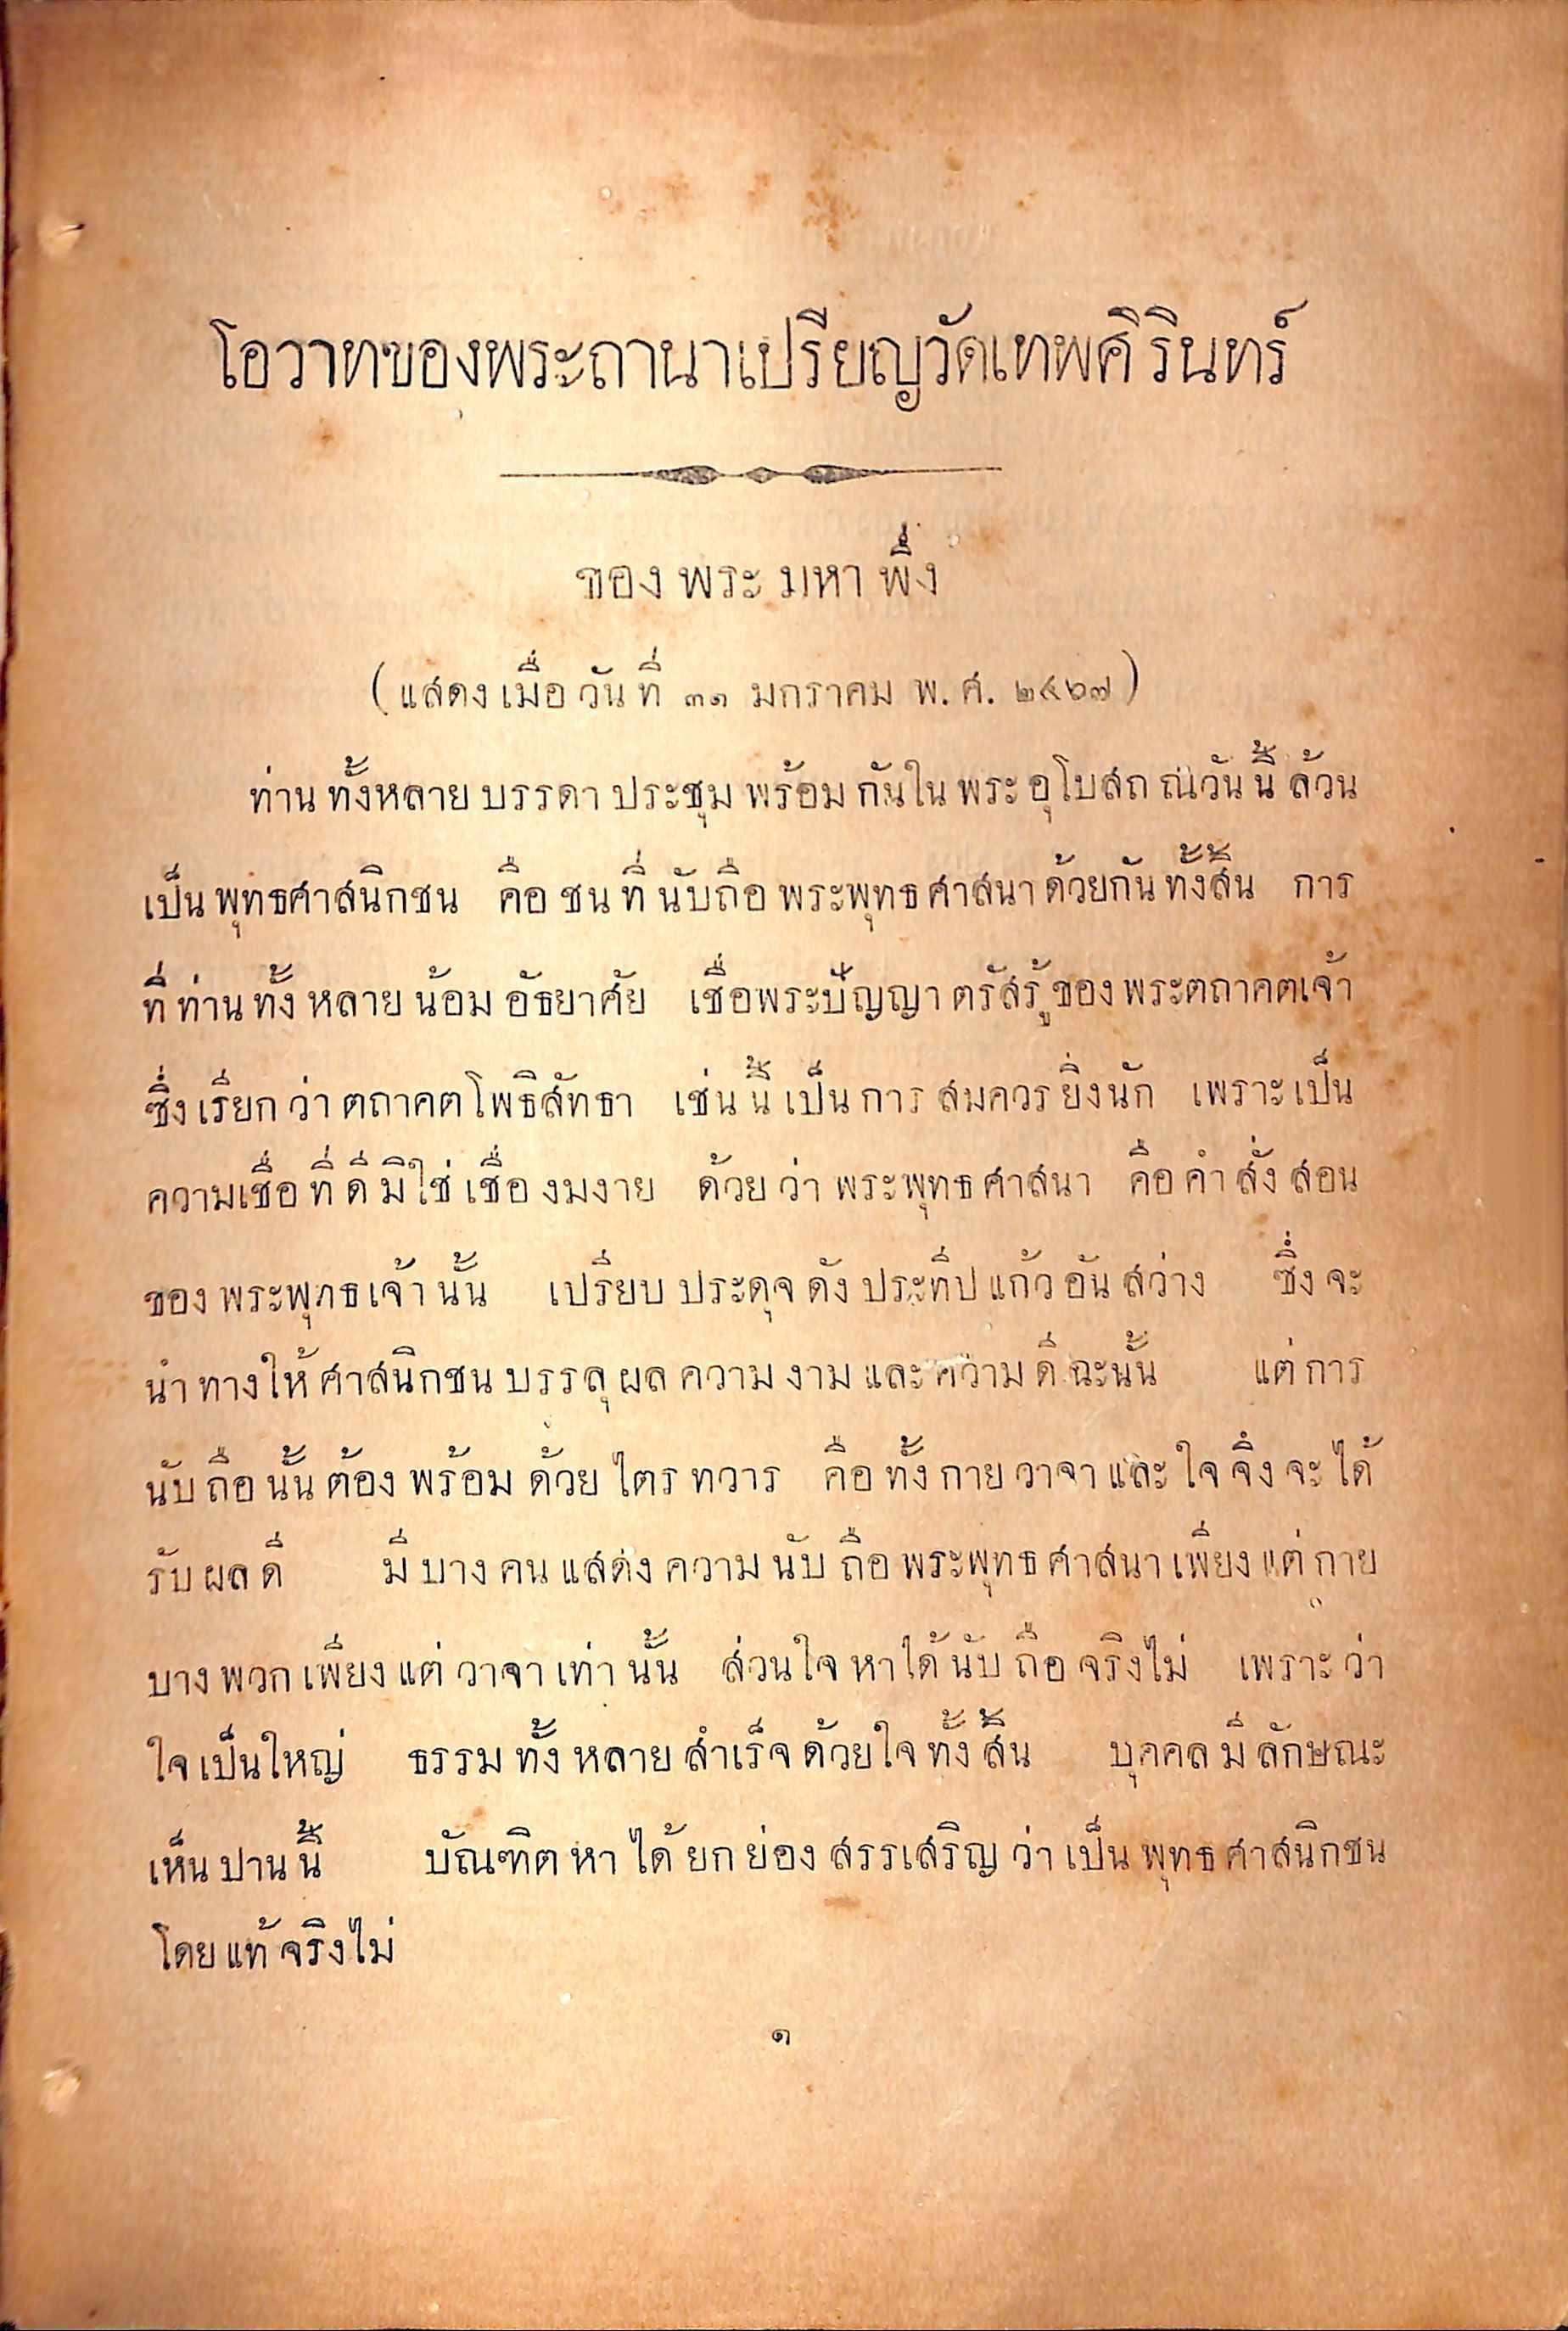 โอวาทของพระถานาเปรียญวัดเทพศิรินทร์
ของ พระ มหา พึ่ง
( แสดง เมื่อ วัน ที่ ๓๑ มกราคม พ. ศ. ๒๔๖๗ )
ท่าน ทั้งหลาย บรรดา ประชุม พร้อม กันใน พระ อุโบสถ ณวัน นี้ ล้วน
เป็น พุทธศาสนิกชน คือ ชน ที่ นับถือ พระพุทธ ศาสนา ด้วยกัน ทั้งสิ้น การ
ที่ ท่าน ทั้ง หลาย น้อม อัธยาศัย เชื่อพระปัญญา ตรัสรู้ ของ พระตถาคตเจ้า
ซึ่ง เรียก ว่า ตถาคตโพธิสัทธา เช่น นี้ เป็น การ สมควร ยิ่งนัก เพราะ เป็น
ความเชื่อ ที่ ดี มิใช่ เชื่อ งมงาย ด้วย ว่า พระพุทธ ศาสนา คือ คำ สั่ง สอน
ของ พระพุทธ เจ้า นั้น เปรียบ ประดุจ ดัง ประทีป แก้ว อัน สว่าง ซึ่ง จะ
นำ ทางให้ ศาสนิกชน บรรลุ ผล ความ งาม และ ความ ดี ฉะนั้น แต่ การ
นับ ถือ นั้น ต้อง พร้อม ด้วย ไตร ทวาร คือ ทั้ง กาย วาจา และ ใจ จึง จะ ได้
รับ ผล ดี มี บาง คน แสดง ความ นับ ถือ พระพุทธ ศาสนา เพียง แต่ กาย
บาง พวก เพียง แต่ วาจา เท่า นั้น ส่วนใจ หาได้ นับ ถือ จริงไม่ เพราะ ว่า
ใจ เป็นใหญ่ ธรรม ทั้ง หลาย สำเร็จ ด้วยใจ ทั้ง สิ้น บุคคล มี ลักษณะ
เห็น ปาน นี้ บัณฑิต หา ได้ ยก ย่อง สรรเสริญ ว่า เป็น พุทธ ศาสนิกชน
โดย แท้ จริงไม่
๑